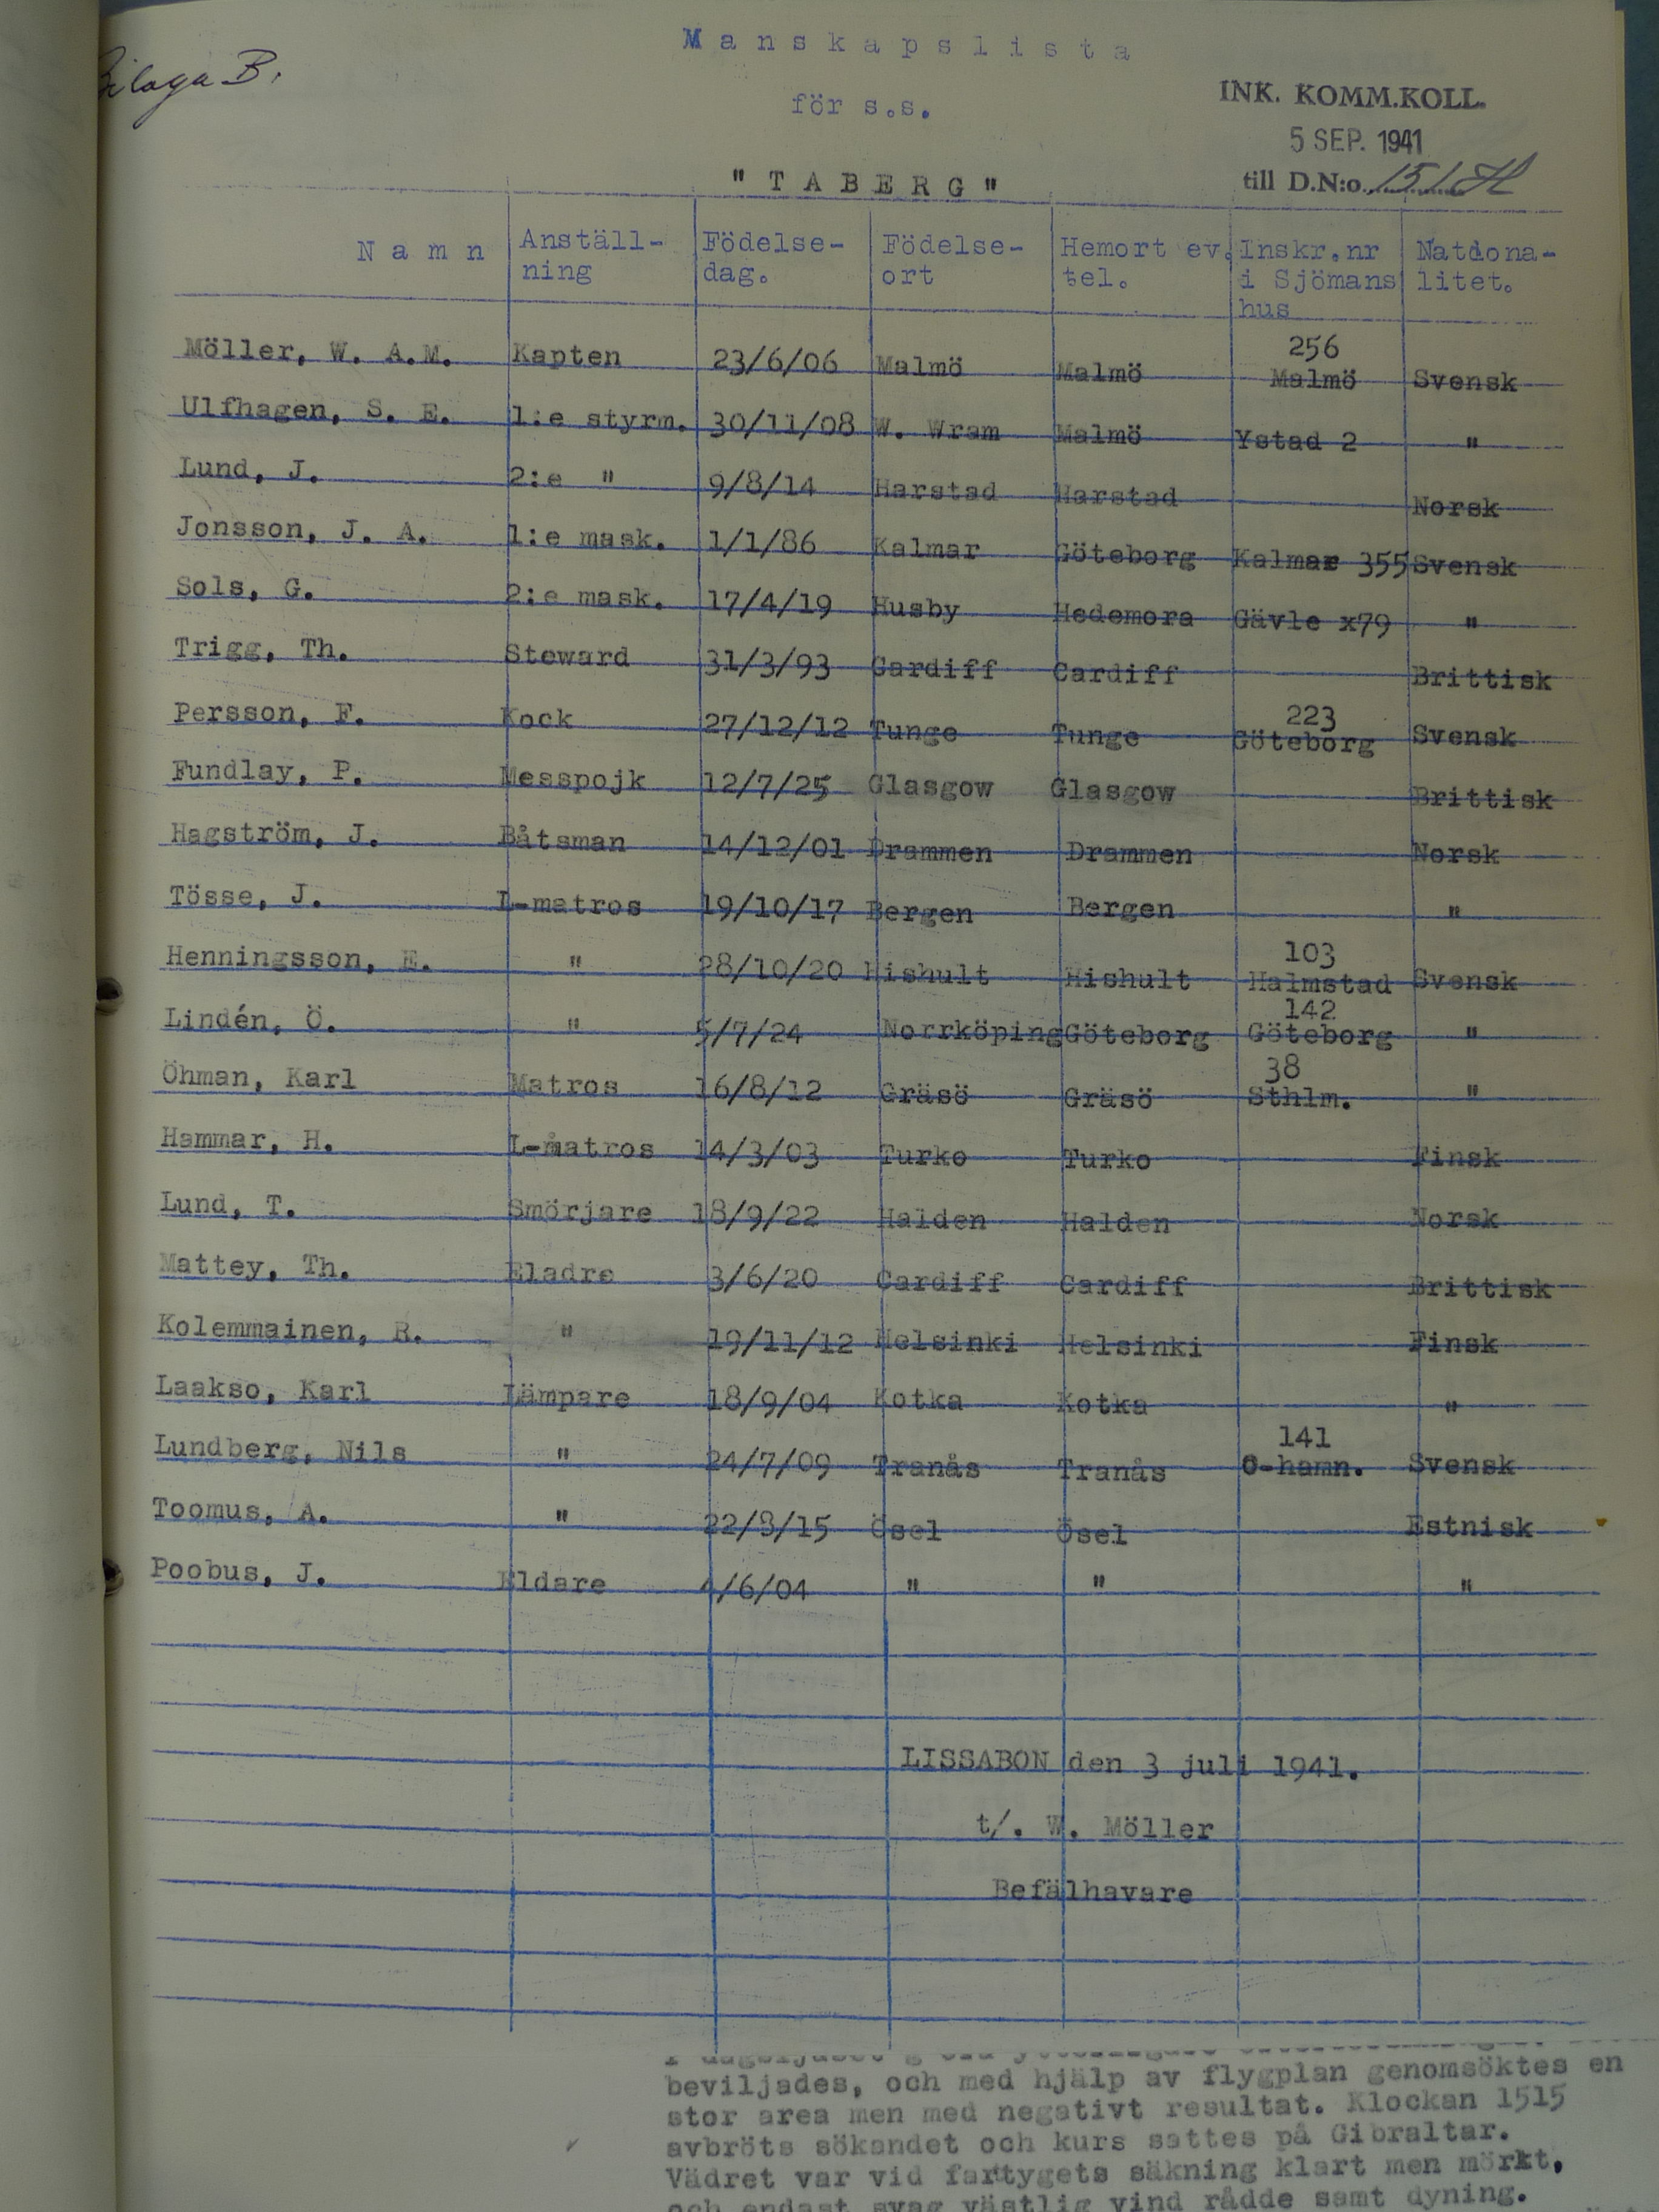 Bilaga B.
Manskapslista
för s.s.
"TABERG"
INK. KOMM.KOLL.
5 SEP. 1941
till D.N:o 151
Namn Anställ- Födelse- Födelse- Hemort ev. Inskr.nr Natdona-
ning dag. ort tel. i Sjömans litet.
hus
256
Möller, W. A.M. Kapten 23/6/06 Malmö Malmö Malmö Svensk
Ulfhagen, S. E. 1:e styrm. 30/11/08 W. Wram Malmö Ystad 2 "
Lund, J. 2:e " 9/8/14 Harstad Harstad Norsk
Jonsson, J. A. 1:e mask. 1/1/86 Kalmar Göteborg Kalmar 355 Svensk
Sols, G. 2:e mask. 17/4/19 Husby Hedemora Gävle x79 "
Trigg, Th. Steward 31/3/93 Cardiff Cardiff Brittisk
223
Persson, F. Kock 27/12/12 Tunge Tunge Göteborg Svensk
Fundlay, P. Messpojk 12/7/25 Glasgow Glasgow Brittisk
Hagström, J. Båtsman 14/12/01 Drammen Drammen Norsk
Tösse, J. L-matros 19/10/17 Bergen Bergen "
103
Henningsson, E. " 28/10/20 Hishult Hishult Halmstad Svensk
142
Lindén, Ö. " 5/7/24 Norrköping Göteborg Göteborg "
38
Öhman, Karl Matros 16/8/12 Gräsö Gräsö Sthlm. "
Hammar, H. L-matros 14/3/03 Turko Turko Finsk
Lund, T. Smörjare 18/9/22 Halden Halden Norsk
Mattey, Th. Eladre 3/6/20 Cardiff Cardiff Brittisk
Kolemmainen, R. " 19/11/12 Helsinki Helsinki Finsk
Laakso, Karl Lämpare 18/9/04 Kotka Kotka "
141
Lundberg, Nils " 24/7/09 Tranås Tranås O-hamn. Svensk
Toomus, A. " 22/8/15 Ösel Ösel Estnisk
Poobus, J. Eldare 4/6/04 " " "
LISSABON den 3 juli 1941.
t/. W. Möller
Befälhavare
beviljades, och med hjälp av flygplan genomsöktes en
stor area men med negativt resultat. Klockan 1515
avbröts sökandet och kurs sattes på Gibraltar.
Vädret var vid fartygets säkning klart men mörkt,
och endast svag västlig vind rådde samt dyning.